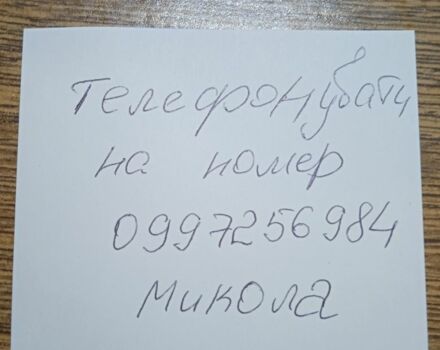 Телефонувати
на номер
0997256984
Микола